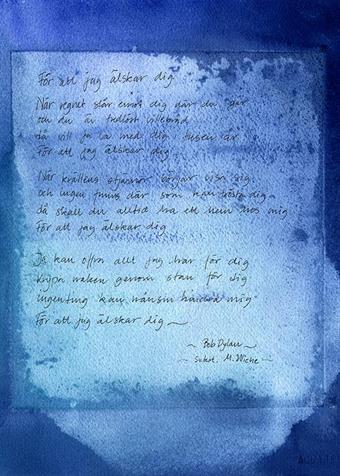 För att jag älskar dig
När regnet slår emot dig där du går
och du är fredlöst villebråd
då vill ja ta med dig tusen år
För att jag älskar dig
När kvällens stjärnor börjar visa sig
och ingen finns där som kan trösta dig
då skall du alltid ha ett hem hos mig
För att jag älskar dig
Ja kan offra allt jag har för dig
krypa naken genom stan för dig
ingenting kan nånsin hindra mig
För att jag älskar dig
~ Bob Dylan ~
~ svensk. M. Wiehe ~